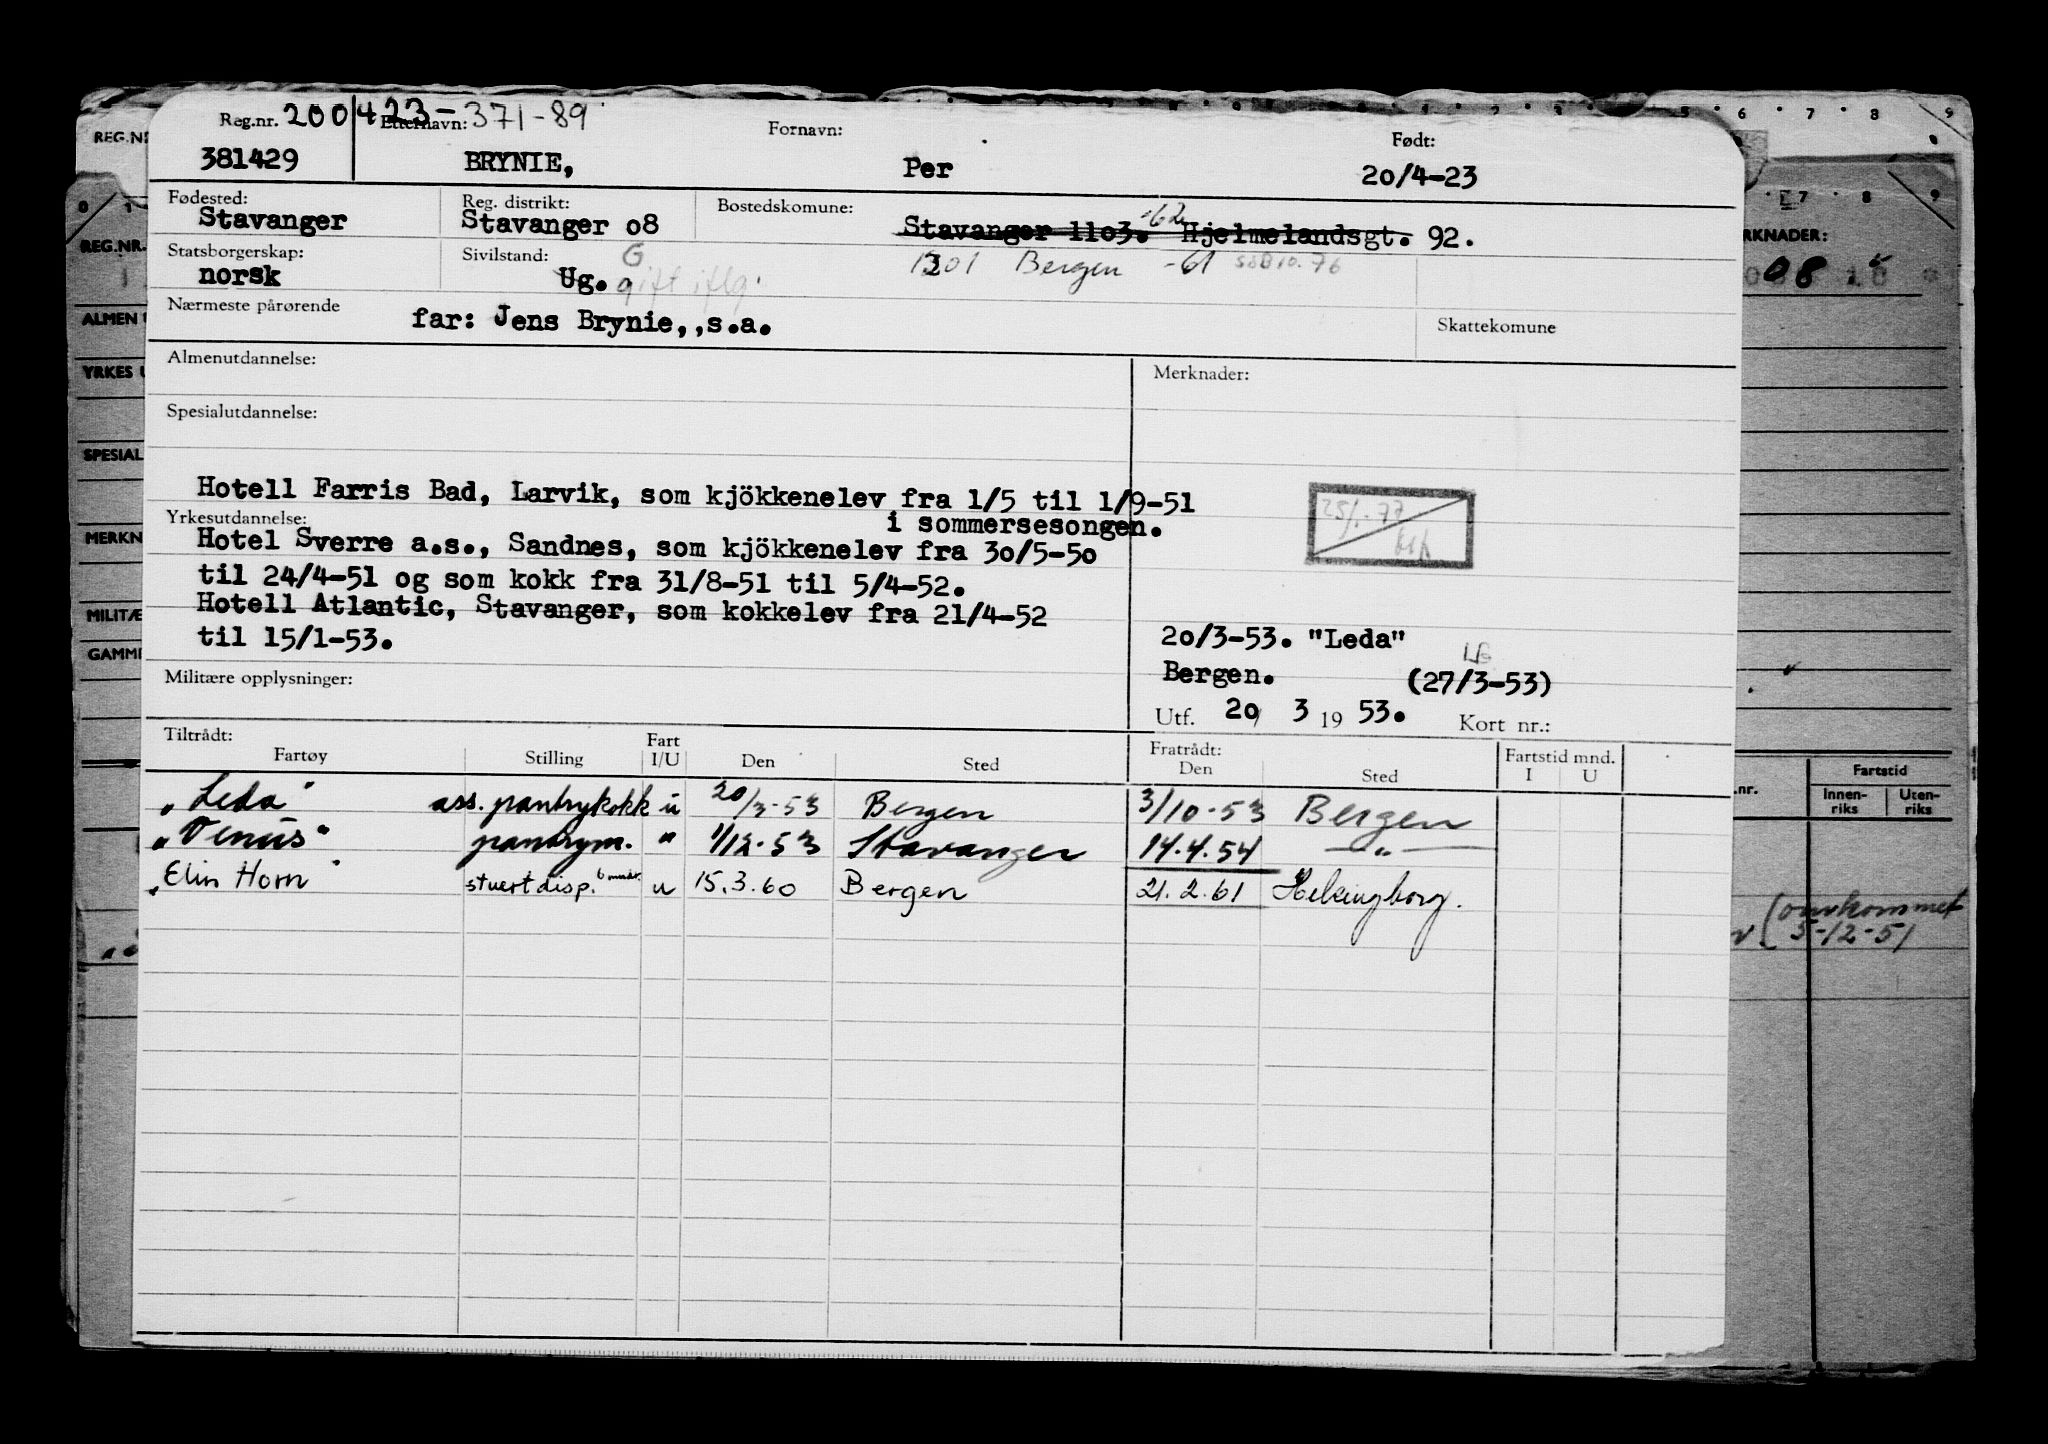 Reg.nr. 200423-371-89 Etternavn: Fornavn: Født:
381429 BRYNIE, Per 20/4-23
Fødested: Reg. distrikt: Bostedskomune:
Stavanger Stavanger o8 Stavanger 11o3. -62 Hjelmelandsgt. 92.
Statsborgerskap: Sivilstand: G 1201 Bergen -61
norsk Ug. gift iflg.
Nærmeste pårørende far: Jens Brynie,,s.a. Skattekomune
Almenutdannelse: Merknader:
Spesialutdannelse:
Hotell Farris Bad, Larvik, som kjökkenelev fra 1/5 til 1/9-51
Yrkesutdannelse: i sommersesongen.
Hotel Sverre a.s., Sandnes, som kjökkenelev fra 3o/5-5o
til 24/4-51 og som kokk fra 31/8-51 til 5/4-52.
Hotell Atlantic, Stavanger, som kokkelev fra 21/4-52
til 15/1-53.
25/1-77
20/3-53. "Leda"
Bergen. (27/3-53)
Militære opplysninger: Utf. 20 3 19 53. Kort nr.:
Tiltrådt: Fart Fratrådt: Fartstid mnd.
Fartøy Stilling I/U Den Sted Den Sted I U
"Leda" ass. pantrykokk u 20/3-53 Bergen 3/10-53 Bergen
"Venus" pantrym. " 1/12-53 Stavanger 14.4.54 — " —
"Elin Horn" stuert disp. 6 mndr. u 15.3.60 Bergen 21.2.61 Helsingborg.
REG.NR.
ALMEN
YRKES
SPESIAL
MERKN
MILITÆ
GAMME
RKNADER:
08
.nr. Fartstid
Innen-riks Uten-riks
(omkommet
5-12-51